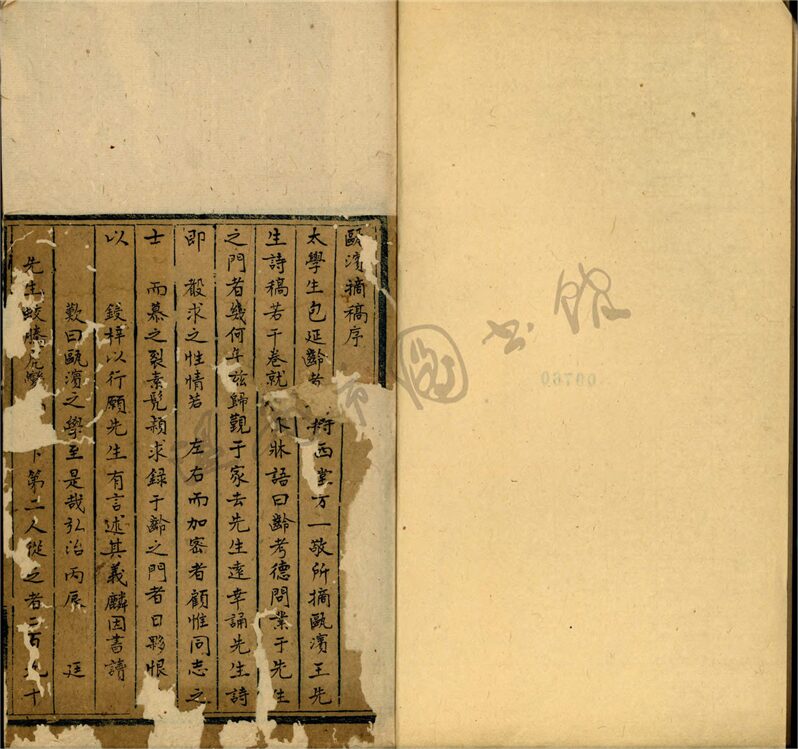 甌濱摘稿序
太學生包延齡 將西業方一敬所摘甌濱王先
生詩稿若干卷就 牀語曰齡考德問業于先生
之門者幾何年茲歸覲于家去先生遠幸誦先生詩
即 般求之性情若 左右而加密者顧惟同志之
士 而慕之裂素髡穎求録于齡之門者日夥恨
以 鋟梓以行願先生有言述其義麟因書請
歎曰甌濱之學至是哉弘治丙辰 廷
先生蛟騰 下第二人從之者二百九十
圖書館
09760